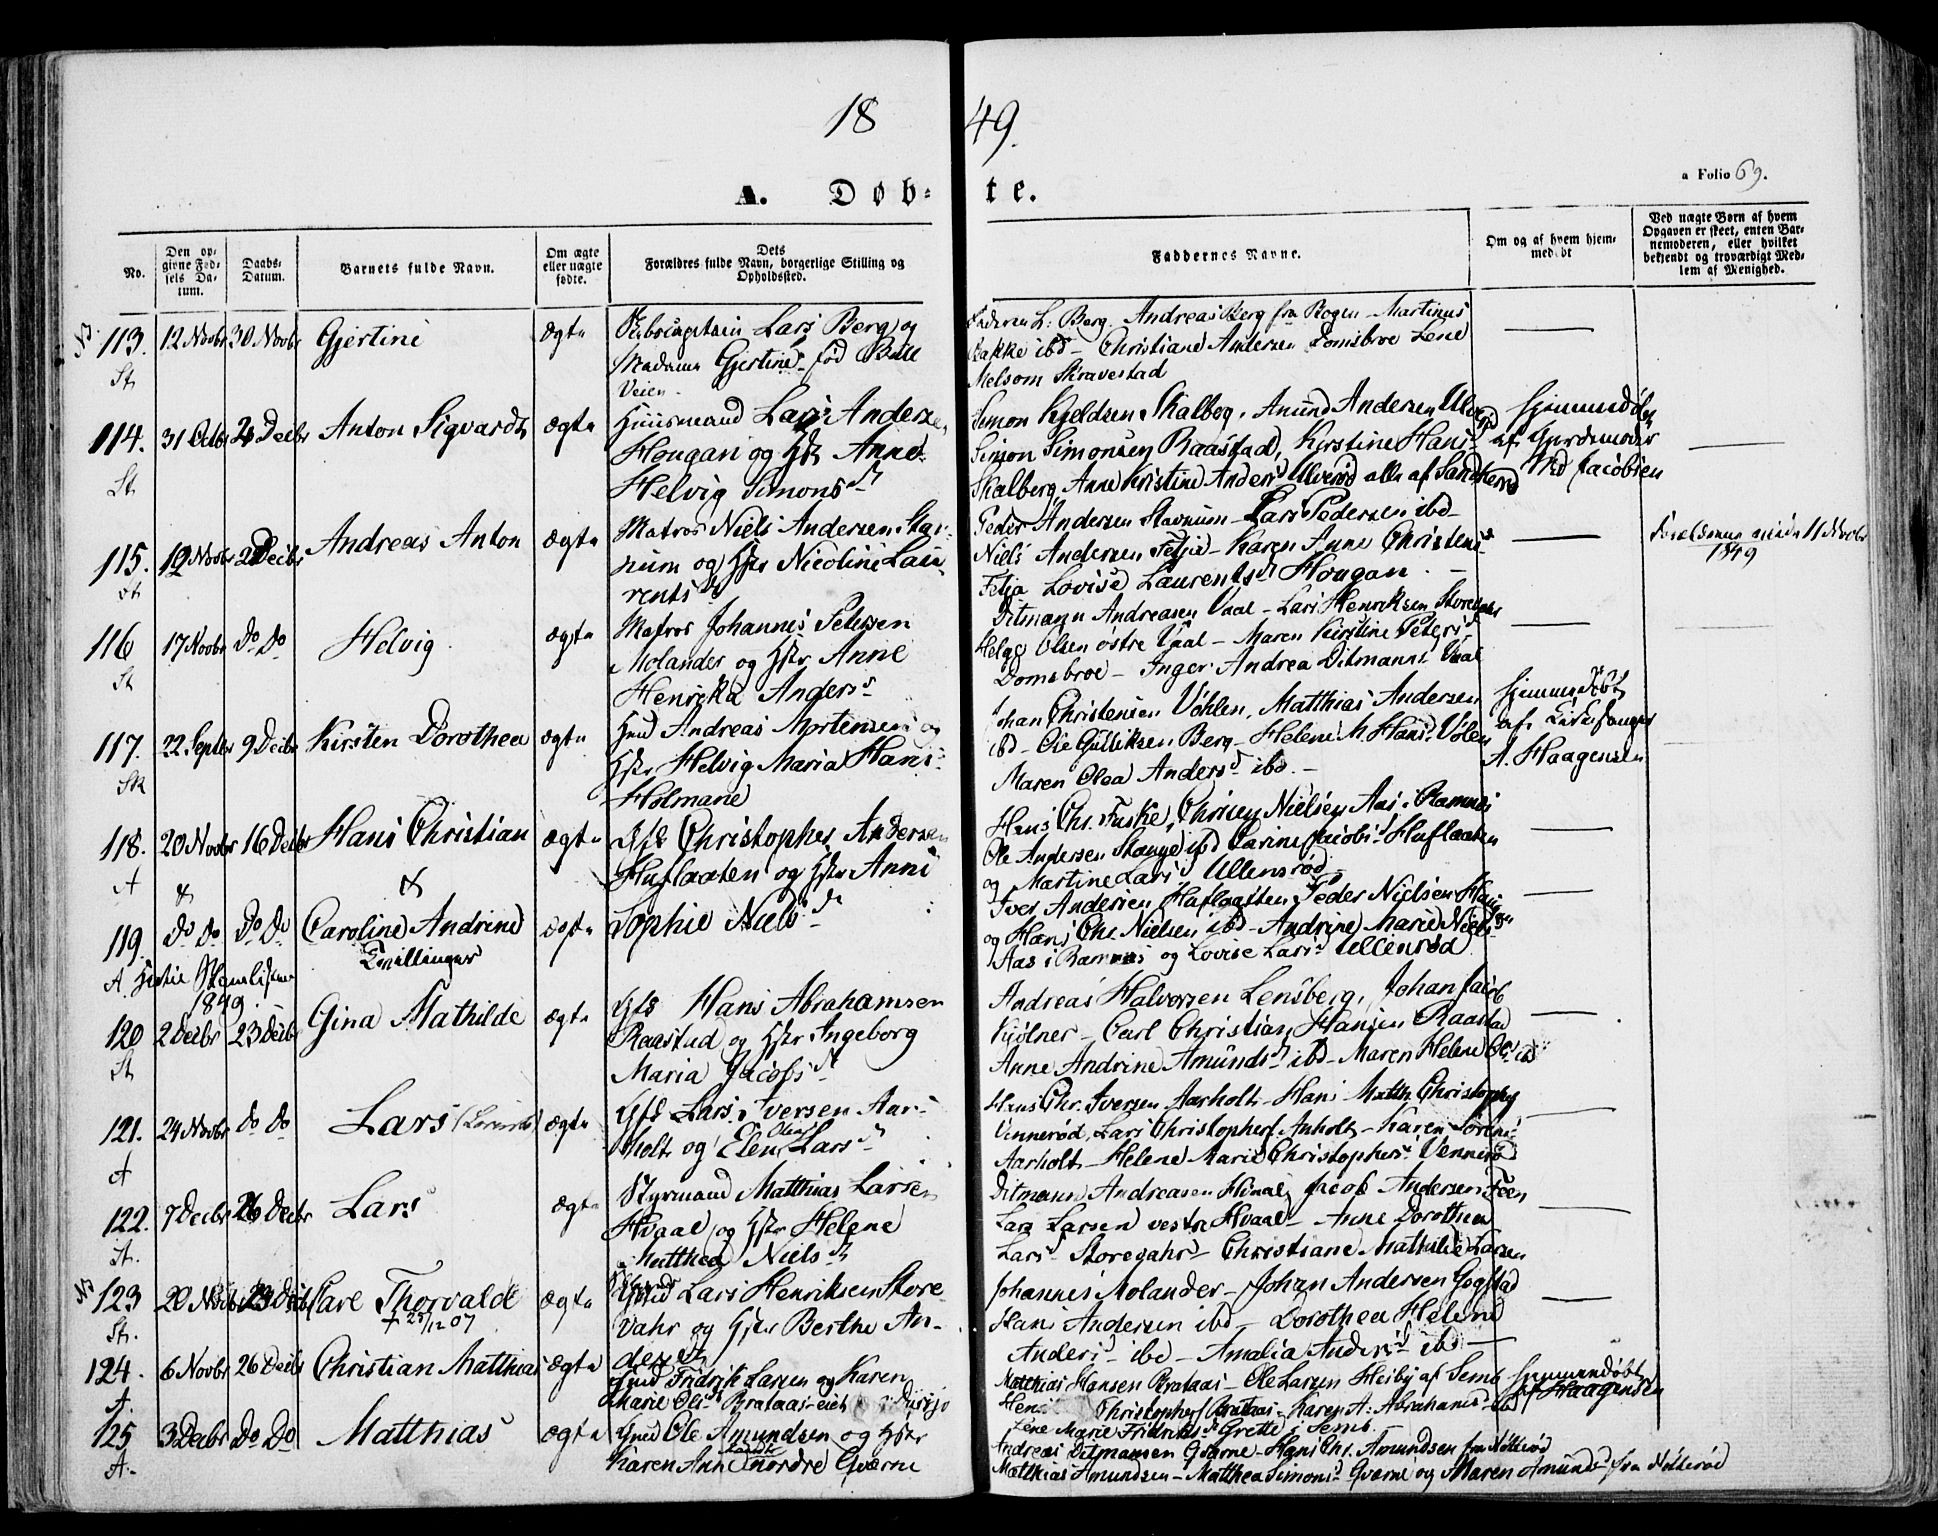 18 49.
a Folio 69.
A. Døb- te.
No.
Den op-
givne Fød-
sels Da-
tum.
Daabs-
Datum.
Barnets fulde Navn.
Om ægte
eller uægte
fødte.
Dets
Forældres fulde Navn, borgerlige Stilling og
Opholdssted.
Faddernes Navne.
Om og af hvem hjem-
medøbt
Ved uægte Børn af hvem
Opgaven er skeet, enten Bar-
nemoderen, eller hvilket
bekjendt og troværdigt Med-
lem af Menighed.
113. 12 Novbr 30 Novbr Gjertine ægte
Skibscapitain Lars Berg og
Madame Gjertine fød Bull
Veien
L. Berg. Andreas Berg fra Bogen - Martinus
Bakke ibd - Christiane Andersen Domsbroe Lene
Melsom Skravestad
St
114. 31 Octbr 2 Decbr Anton Sigvardt ægte
Huusmand Lars Andersen
Hougan og Hst Anne
Helvig Simonsd
Simon Kjeldsen Skalberg, Amund Andersen
Simon Simonsen Raastad, Kirstine Hans
Skalberg, Anne Kristine Andersd Ulverød alle af Sandherred
Hjemmedøbt
af Gjordemoder
Jacobsen
St.
115. 19 Novbr 2 Decbr Andreas Anton ægte
Matros Niels Andersen Stav-
num og Hstr Nicoline Lau-
rentsd
Peder Andersen Stavnum - Lars Pedersen ibd -
Niels Andersen Fetja - Karen Anne Christensd
Fetja Lovise Laurentsd Hougan. -
Forældrene viede 11 Novbr
1849
St
116 17 Novbr Do Do Helvig ægte
Matros Johannes Petersen
Molander og Hstr Anne
Henrikа Andersd
Ditmann Andreasen Vaal - Lars Henriksen
Helge Olsen østre Vaal - Maren Kirstine Petersd
Domsbroe - Inger Andrea Ditmannsd Vaal
St
117. 22 Septbr 9 Decbr Kirsten Dorothea ægte
Gmd Andreas Mortensen og
Hstr Helvig Maria Hans
Holmane
Johan Christensen Vøhlen, Matthias Andersen
ibd - Ole Gulliksen Berg - Helene M. Hansd Vølen
Maren Olea Andersd ibd. -
Hjemmedøbt
af Kirkesanger
A. Haagensen
Sk
118. 20 Novbr 16 Decbr Hans Christian ægte
Gfs Christopher Andersen
Huflaaten og Hstr Anne
Hans Chr. Fuske, Christen Nielsen Aas i Ramnes
Ole Andersen Stange ibd Carine Jacobsd Huflaaten
og Martine Larsd Ullensrød
A & &
119. Do Do Do Do Caroline Andrine ægte Sophie Nielsd
Tvillinger
Iver Andersen Huflaatten, Peder Nielsen
og Hans Chr. Nielsen ibd - Andrine Marie Nielsd
Aas i Ramnes og Lovise Larsd Ullenrød
A.
1849.
120 2 Decbr 23 Decbr Gina Mathilde ægte
Gfs Hans Abrahamsen
Raastad og Hstr Ingeborg
Maria Jacobsd
Andreas Halvorsen Lensberg, Johan Jacob
Kjølner - Carl Christian Hansen Raastad
Anne Andrine Amundsd ibd - Maren Helene
St
121. 24 Novbr Do Do Lars ægte
Gfs Lars Iversen Aar-
holt og Elen Olea Larsd
Hans Chr. Iversen Aarholt - Hans Matth. Christophers
Vennerød, Lars Christophers Anholt - Karen Sørens
Aarholt - Helene Marie Christophersd Vennerød
A
122. 7 Decbr 26 Decbr Lars ægte
Styrmand Matthias Larsen
Hvaal og Hstr Helene
Matthea Nielsd
Ditmann Andreasen Hvaal, Jacob Andersen Feen
Lars Larsen vestre Hvaal - Anne Dorothea
Larsd Storevahr - Christiane Mathilde Larsen
St.
123 20 Novbr 23 Decbr Carl Thorvald ægte
+ 25/12 07
Gmd Lars Henriksen Store-
Vahr og Hstr Berthe An-
dersd
Johannes Molander - Johan Andersen Gogstad
Hans Andersen ibd - Dorothea Helene
Andersd ibd - Amalia Andersd ibd
St.
124. 6 Novbr 26 Decbr Christian Matthias ægte
Gmd Fridrik Larsen og Karen
Marie Olsd Brataas-eiet
Matthias Hansen Brataas - Ole Larsen Heiby af Semb
Christophers Brataas - Karen A. Abrahamsd ibd
Lene Marie Fridriksd Grette i Semb. -
Hjemmedøbt
af Haagensen
A.
125 3 Decbr Do Do Matthias ægte
Gmd Ole Amundsen og Hstr
Karen Anne nordre Gværne
Andreas Ditmansen Gværne - Hans Chr. Amundsen fra Nøtterød
Matthias Amundsen - Matthea Simonsd Gværne og Maren Amundsd fra Nøtterød
A.